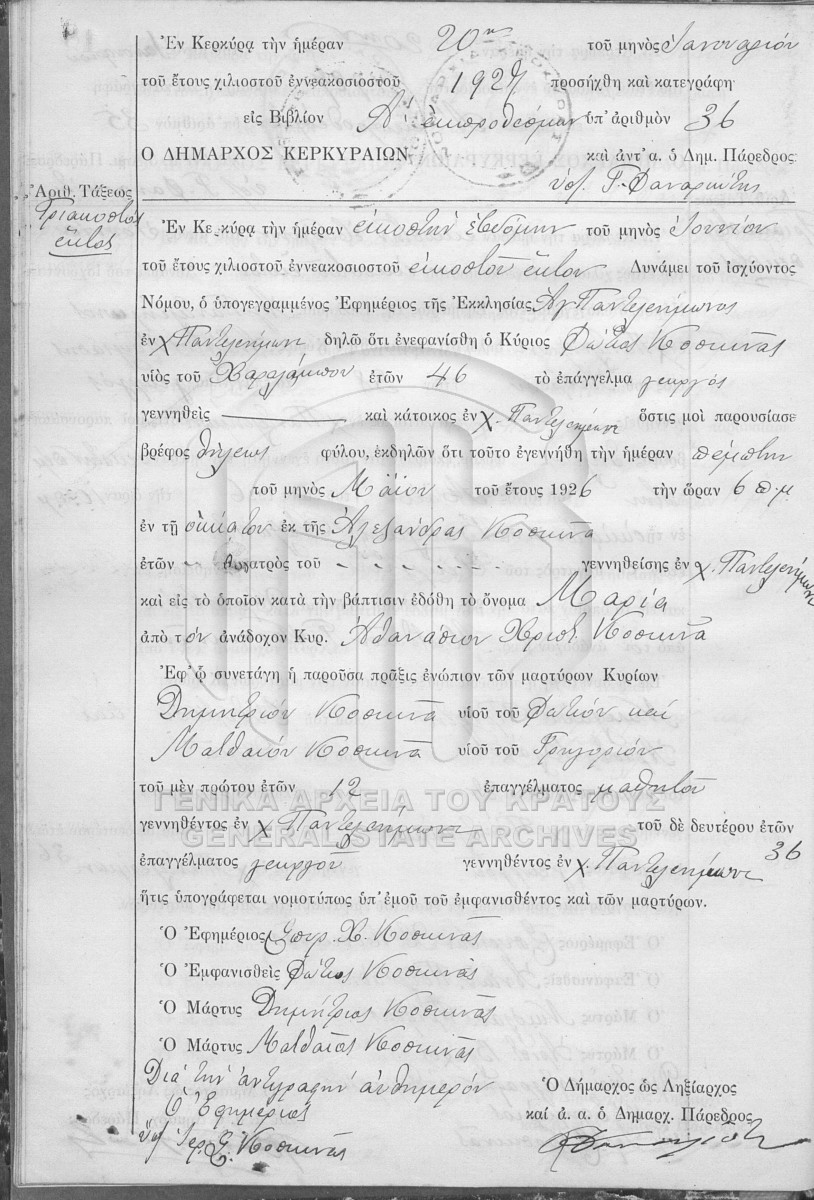 Ἐν Κερκύρᾳ τὴν ἡμέραν 20ην τοῦ μηνὸς Ἰανουαρίου
τοῦ ἔτους χιλιοστοῦ ἐννεακοσιοστοῦ 1927 προσήχθη καὶ κατεγράφη
εἰς Βιβλίον Α' ἐκπροθέσμων ὑπ' ἀριθμὸν 36
Ο ΔΗΜΑΡΧΟΣ ΚΕΡΚΥΡΑΙΩΝ καὶ ἀντ' α. ὁ Δημ. Πάρεδρος
ὑπ. Γ. Φαναριώτης
Ἀριθ. Τάξεως
Τριακοστὸς
ἕκτος
Ἐν Κερκύρᾳ τὴν ἡμέραν εἰκοστὴν ἑβδόμην τοῦ μηνὸς Ἰουνίου
τοῦ ἔτους χιλιοστοῦ ἐννεακοσιοστοῦ εἰκοστοῦ ἕκτου Δυνάμει τοῦ ἰσχύοντος
Νόμου, ὁ ὑπογεγραμμένος Ἐφημέριος τῆς Ἐκκλησίας Ἁγ. Παντελεήμωνος
ἐν χ. Παντελεήμωνι δηλῶ ὅτι ἐνεφανίσθη ὁ Κύριος Φώτιος Κοσκινᾶς
υἱὸς τοῦ Χαραλάμπου ἐτῶν 46 τὸ ἐπάγγελμα γεωργὸς
γεννηθεὶς καὶ κάτοικος ἐν χ. Παντελεήμωνι ὅστις μοὶ παρουσίασε
βρέφος θήλεως φύλου, ἐκδηλῶν ὅτι τοῦτο ἐγεννήθη τὴν ἡμέραν πέμπτην
τοῦ μηνὸς Μαΐου τοῦ ἔτους 1926 τὴν ὥραν 6 π.μ
ἐν τῇ οἰκίᾳ του ἐκ τῆς Ἀλεξάνδρας Κοσκινᾶ
ἐτῶν θυγατρὸς τοῦ γεννηθείσης ἐν χ. Παντελεήμωνι
καὶ εἰς τὸ ὁποῖον κατὰ τὴν βάπτισιν ἐδόθη τὸ ὄνομα Μαρία
ἀπὸ τὸν ἀνάδοχον Κυρ. Ἀθανάσιον Χριστ. Κοσκινᾶ
Ἐφ' ᾧ συνετάγη ἡ παροῦσα πρᾶξις ἐνώπιον τῶν μαρτύρων Κυρίων
Δημητρίου Κοσκινᾶ υἱοῦ τοῦ Φωτίου καὶ
Ματθαίου Κοσκινᾶ υἱοῦ τοῦ Γρηγορίου
τοῦ μὲν πρώτου ἐτῶν 12 ἐπαγγέλματος μαθητοῦ
ΓΕΝΙΚΑ ΑΡΧΕΙΑ ΤΟΥ ΚΡΑΤΟΥΣ
γεννηθέντος ἐν χ. Παντελεήμωνι τοῦ δὲ δευτέρου ἐτῶν 36
GENERAL STATE ARCHIVES
ἐπαγγέλματος γεωργοῦ γεννηθέντος ἐν χ. Παντελεήμωνι
ἥτις ὑπογράφεται νομοτύπως ὑπ' ἐμοῦ τοῦ ἐμφανισθέντος καὶ τῶν μαρτύρων.
Ὁ Ἐφημέριος Σπυρ. Χ. Κοσκινᾶς
Ὁ Ἐμφανισθεὶς Φώτιος Κοσκινᾶς
Ὁ Μάρτυς Δημήτριος Κοσκινᾶς
Ὁ Μάρτυς Ματθαῖος Κοσκινᾶς
Διὰ τὴν ἀντιγραφὴν αὐθημερόν
Ὁ Ἐφημέριος
Ἱερ. Σ. Κοσκινᾶς
Ὁ Δήμαρχος ὡς Ληξίαρχος
καί ἀ. α. ὁ Δημαρχ. Πάρεδρος